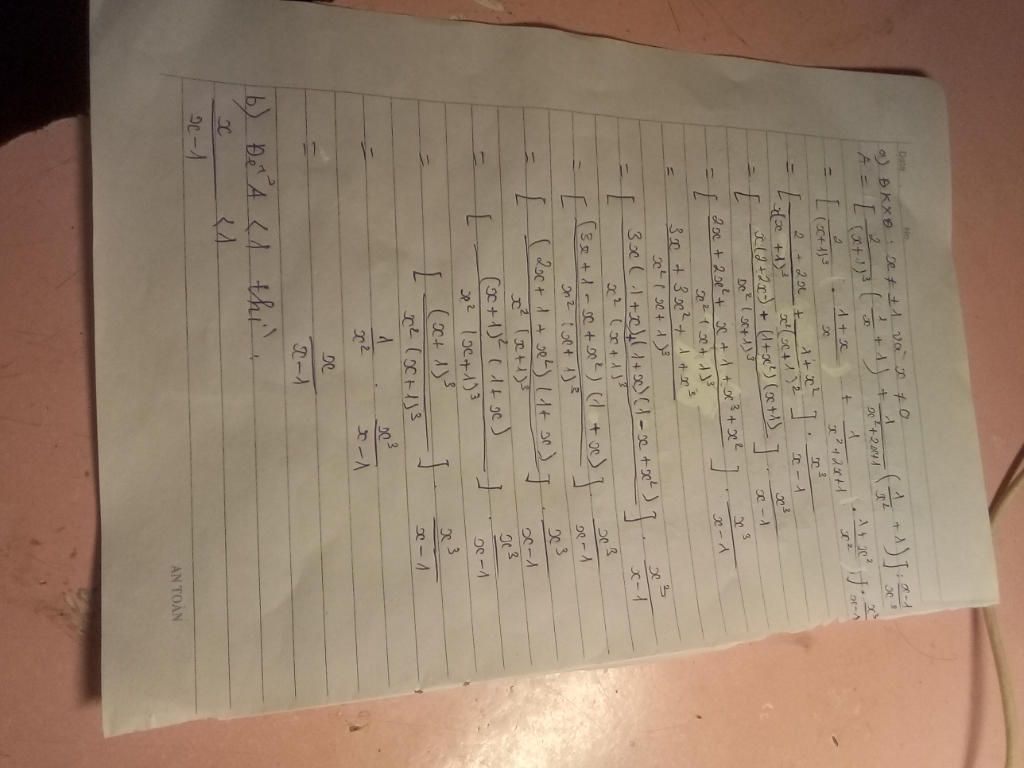 a) ĐKXĐ : x ≠ ±1 và x ≠ 0
A = [ 2/(x+1)³ ( 1/x + 1 ) + 1/(x²+2x+1) ( 1/x² + 1 ) ] : (x-1)/x³
= [ 2/(x+1)³ . (1+x)/x + 1/(x²+2x+1) . (1+x²)/x² ] . x³/(x-1)
= [ (2+2x)/(x(x+1)³) + (1+x²)/(x²(x+1)²) ] . x³/(x-1)
= [ (x(2+2x) + (1+x²)(x+1))/(x²(x+1)³) ] . x³/(x-1)
= [ (2x + 2x² + x + 1 + x³ + x²)/(x²(x+1)³) ] . x³/(x-1)
= (3x + 3x² + 1 + x³)/(x²(x+1)³)
= [ (3x(1+x) + (1+x)(1-x+x²))/(x²(x+1)³) ] . x³/(x-1)
= [ (3x+1-x+x²)(1+x)/(x²(x+1)³) ] . x³/(x-1)
= [ (2x+1+x²)(1+x)/(x²(x+1)³) ] . x³/(x-1)
= [ (x+1)²(1+x)/(x²(x+1)³) ] . x³/(x-1)
= [ (x+1)³/(x²(x+1)³) ] . x³/(x-1)
= 1/x² . x³/(x-1)
= x/(x-1)
b) Để A < 1 thì :
x/(x-1) < 1
AN TOÀN